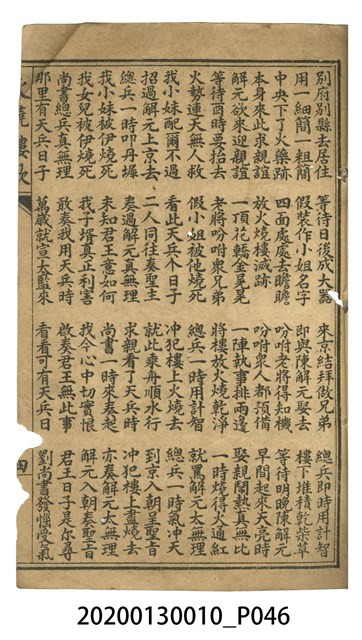 別府別縣去居住 等待日後成大器 來京結拜做兄弟 總兵即時用計智
用一細簡一粗簡 假裝作小姐名字 即與陳解元娶去 樓下堆積乾柴草
中央下了火藥跡 四面處處去瞻瞻 吩咐老將得知機 等待明晚陳解元
本身來此求親誼 放火燒樓滅跡 吩咐眾人都預備 早間起來天亮時
解元欲來迎親誼 一頂花轎金晃晃 一陣執事排兩邊 娶親鬧熱真無比
等待酉時要抬去 老將吩咐眾兄弟 將樓放火燒乾淨 一時燒得火通紅
火勢連天無人救 假小姐被他燒死 總兵一時用計智 就罵解元太無理
我小妹配爾不過 看此天兵個日子 冲犯樓上火燒去 總兵一時氣冲天
招過解元上京去 二人同往奏聖主 就此乘舟順水行 到京入朝呈聖旨
總兵一時叩丹墀 奏過解元真無理 求親看了天兵時 冲犯樓上盡燒去
我小妹被伊燒死 未知君王意如何 尚書一時來奏起 亦奏解元太無理
我女兒被伊燒死 我子壻真正利害 我今心中切實恨 解元入朝奏聖旨
尚書總兵真無理 敢奏我用天兵時 啟奏君王無此事 君王日子是尔尋
那里有天兵日子 萬歲就宣太監來 看看可有天兵日 劉尚書發怒受氣
燒樓歌
四
20200130010_P046